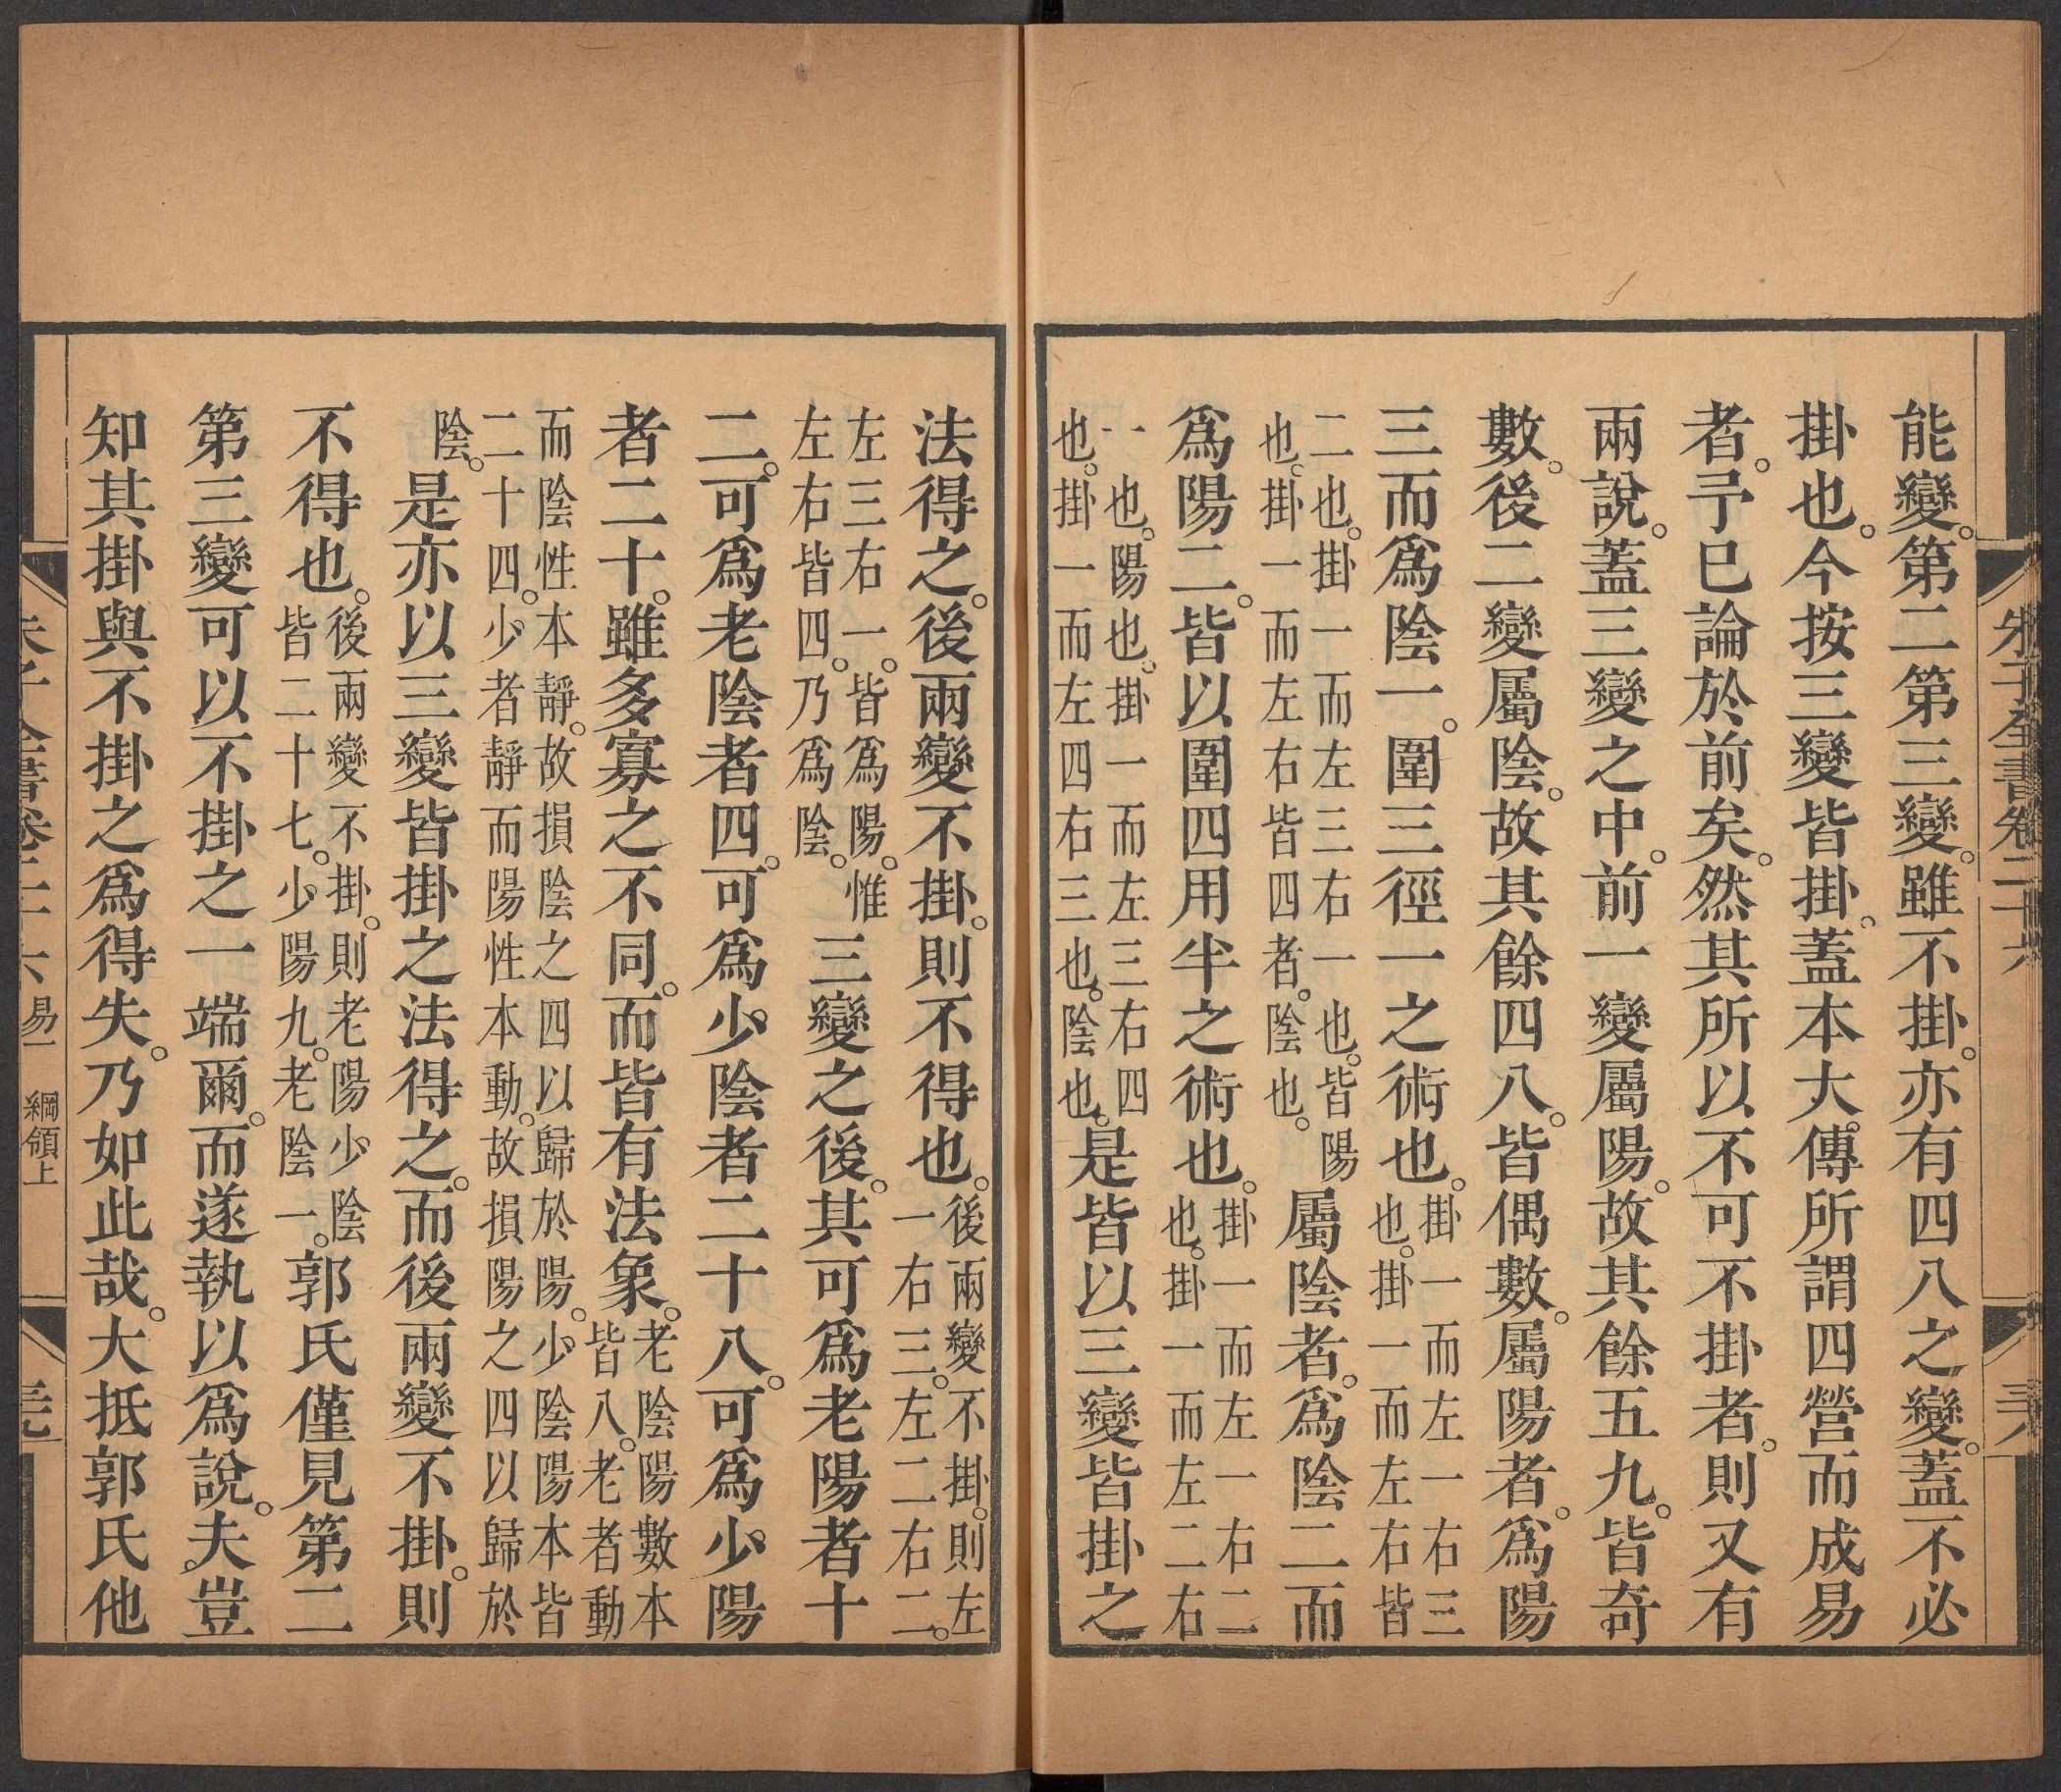 朱子全書卷二十六
能變。第二第三變。雖不掛。亦有四八之變。蓋不必
掛也。今按三變皆掛。蓋本大傳所謂四營而成易
者。予巳論於前矣。然其所以不可不掛者。則又有
兩說。蓋三變之中。前一變屬陽。故其餘五九。皆奇
數。後二變屬陰。故其餘四八。皆偶數。屬陽者。爲陽
三而爲陰一。圍三徑一之術也。
掛一而左一右三
也。掛一而左右皆
二也。掛一而左三右一也。皆陽
也。掛一而左右皆四者。陰也。
屬陰者。爲陰二而
爲陽二。皆以圍四用半之術也。
掛一而左一右二
也。掛一而左二右
一也。陽也。掛一而左三右四
也。掛一而左四右三也。陰也。
是皆以三變皆掛之
法得之。後兩變不掛。則不得也。
後兩變不掛。則左
一右三。左二右二。
左三右一。皆爲陽。惟
左右皆四。乃爲陰。
三變之後。其可爲老陽者十
二。可爲老陰者四。可爲少陰者二十八。可爲少陽
者二十。雖多寡之不同。而皆有法象。
老陰陽數本
皆八。老者動
而陰性本靜。故損陰之四以歸於陽。少陰陽本皆
二十四。少者靜而陽性本動。故損陽之四以歸於
陰。
是亦以三變皆掛之法得之。而後兩變不掛。則
不得也。
後兩變不掛。則老陽少陰
皆二十七。少陽九。老陰一。
郭氏僅見第二
第三變可以不掛之一端爾。而遂執以爲說。夫豈
知其掛與不掛之爲得失。乃如此哉。大抵郭氏他
朱子全書卷二十六 易一 綱領上